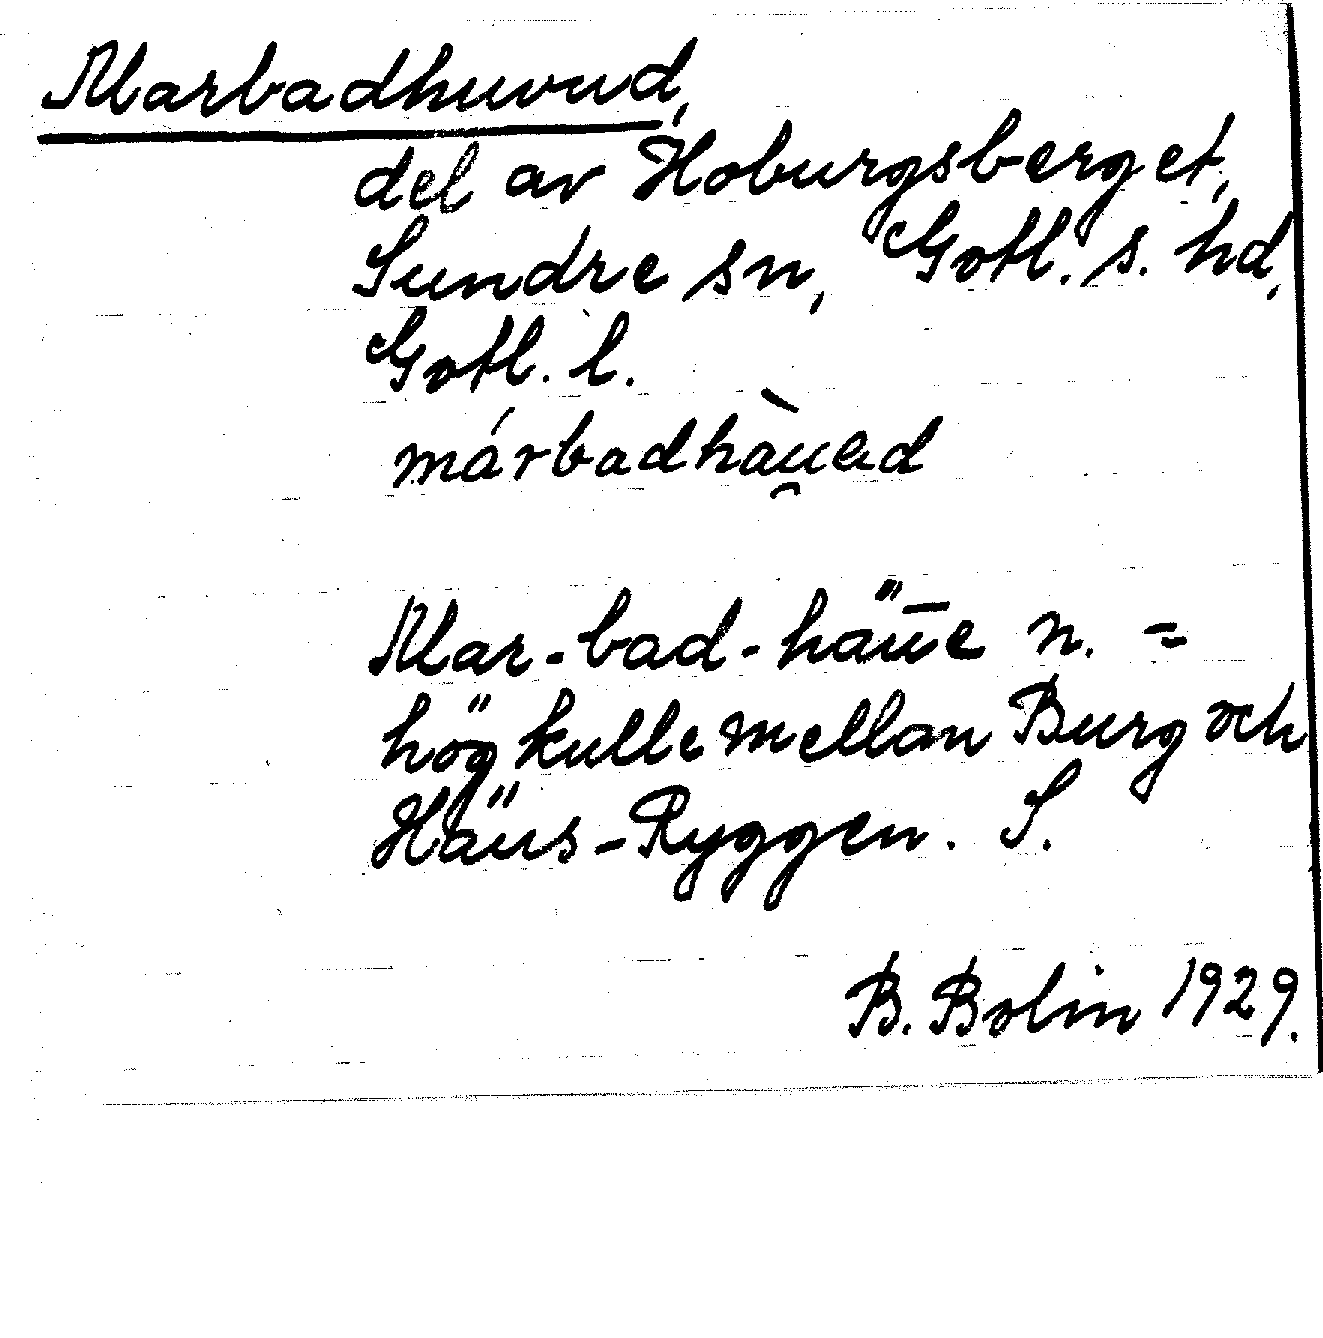 Marbadhuvud,
del av Hoburgsberget,
Sundre sn, Gotl. s. hd,
Gotl. l.
márbadhàu̯ad
Mar-bad-häūe n. =
hög kulle mellan Burg och
Häus-Ryggen. S.
B. Bolin 1929.